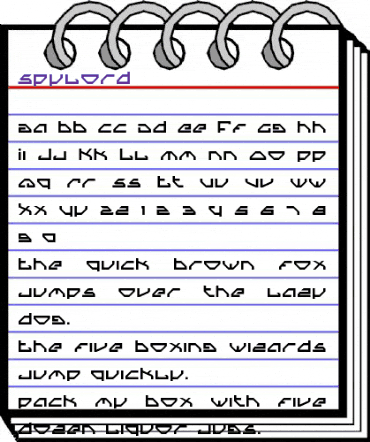 SpyLord
aa bb cc dd ee Ff gg hh
ii Jj Kk LL mm nn oo pp
qq rr ss tt uu vv ww
xx yy zz 1 2 3 4 5 6 7 8
9 0
the quick brown fox
jumps over the lazy
dog.
the five boxing wizards
jump quickly.
pack my box with five
dozen liquor jugs.